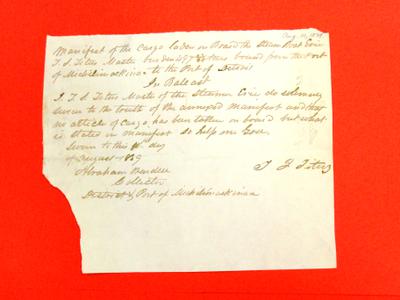 Aug. 10, 1839
Manifest of the Cargo laden on Board the Steam Boat Erie
T. J. Titus Master burden tons bound from the Port
of Michilimackinac to the Port of Detroit
In Ballast
I T J Titus Master of the Steamer Erie do solemnly
swear to the truth of the annexed manifest and that
no article of Cargo, has been taken on board but what
is stated in manifest So help me God.
Sworn to this day
of August 1839
T J Titus
Abraham Wendell
Collector
District & Port of Michilimackinac